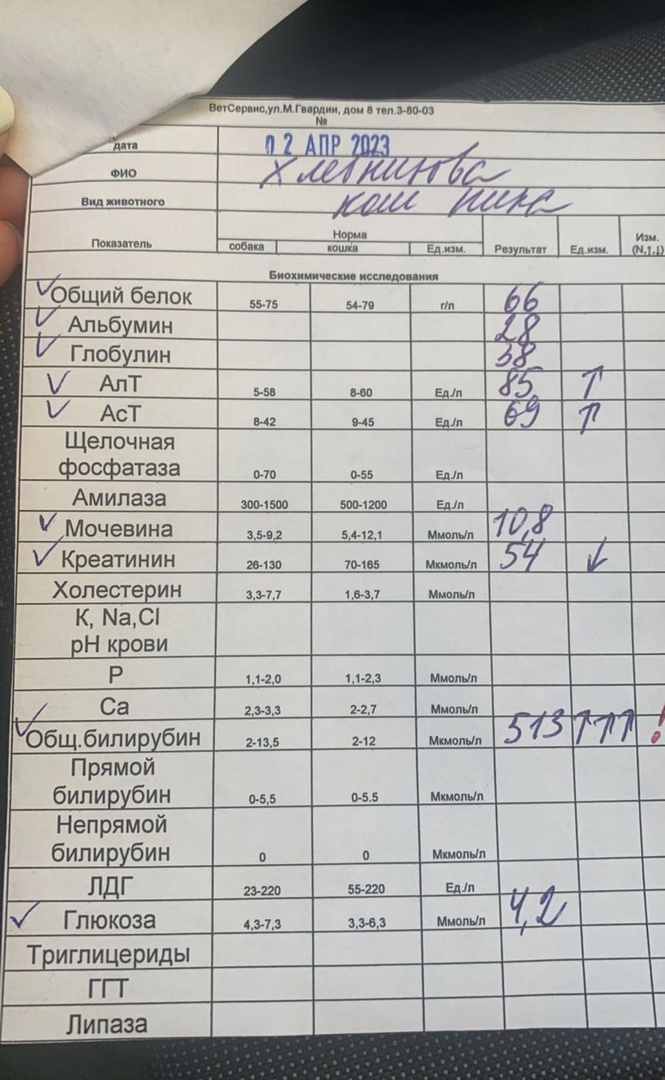 ВетСервис,ул.М.Гвардии, дом 8 тел.3-80-03
№
дата 0 2 АПР 2023
ФИО Хлебникова
Вид животного кош
Показатель Норма Результат Ед.изм. Изм. (N,↑,↓)
собака кошка Ед.изм.
Биохимические исследования
Общий белок 55-75 54-79 г/л 66
Альбумин 28
Глобулин 38
АлТ 5-58 8-60 Ед./л 85 ↑
АсТ 8-42 9-45 Ед./л 69 ↑
Щелочная
фосфатаза 0-70 0-55 Ед./л
Амилаза 300-1500 500-1200 Ед./л
Мочевина 3,5-9,2 5,4-12,1 Ммоль/л 10,8
Креатинин 26-130 70-165 Мкмоль/л 54 ↓
Холестерин 3,3-7,7 1,6-3,7 Ммоль/л
К, Na,Cl
рН крови
Р 1,1-2,0 1,1-2,3 Ммоль/л
Са 2,3-3,3 2-2,7 Ммоль/л
Общ.билирубин 2-13,5 2-12 Мкмоль/л 513 ↑↑↑ !
Прямой
билирубин 0-5,5 0-5.5 Мкмоль/л
Непрямой
билирубин 0 0 Мкмоль/л
ЛДГ 23-220 55-220 Ед./л
Глюкоза 4,3-7,3 3,3-6,3 Ммоль/л 4,2
Триглицериды
ГГТ
Липаза